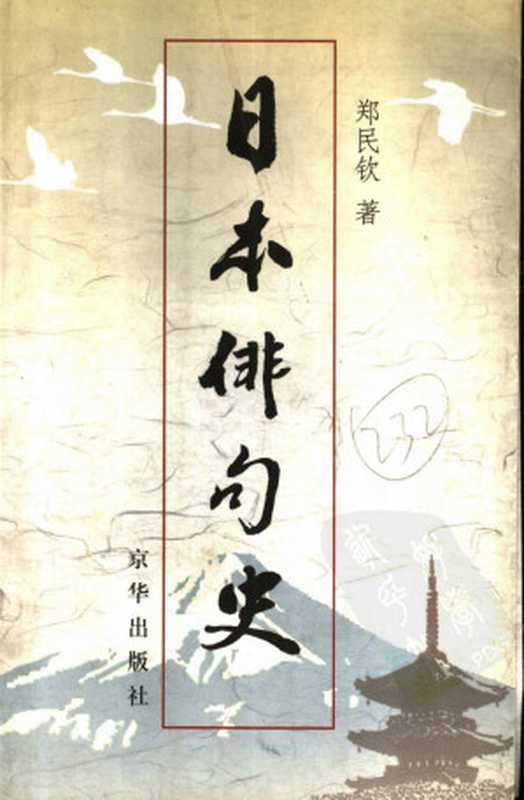 郑民钦 著
日本俳句史
京华出版社
232